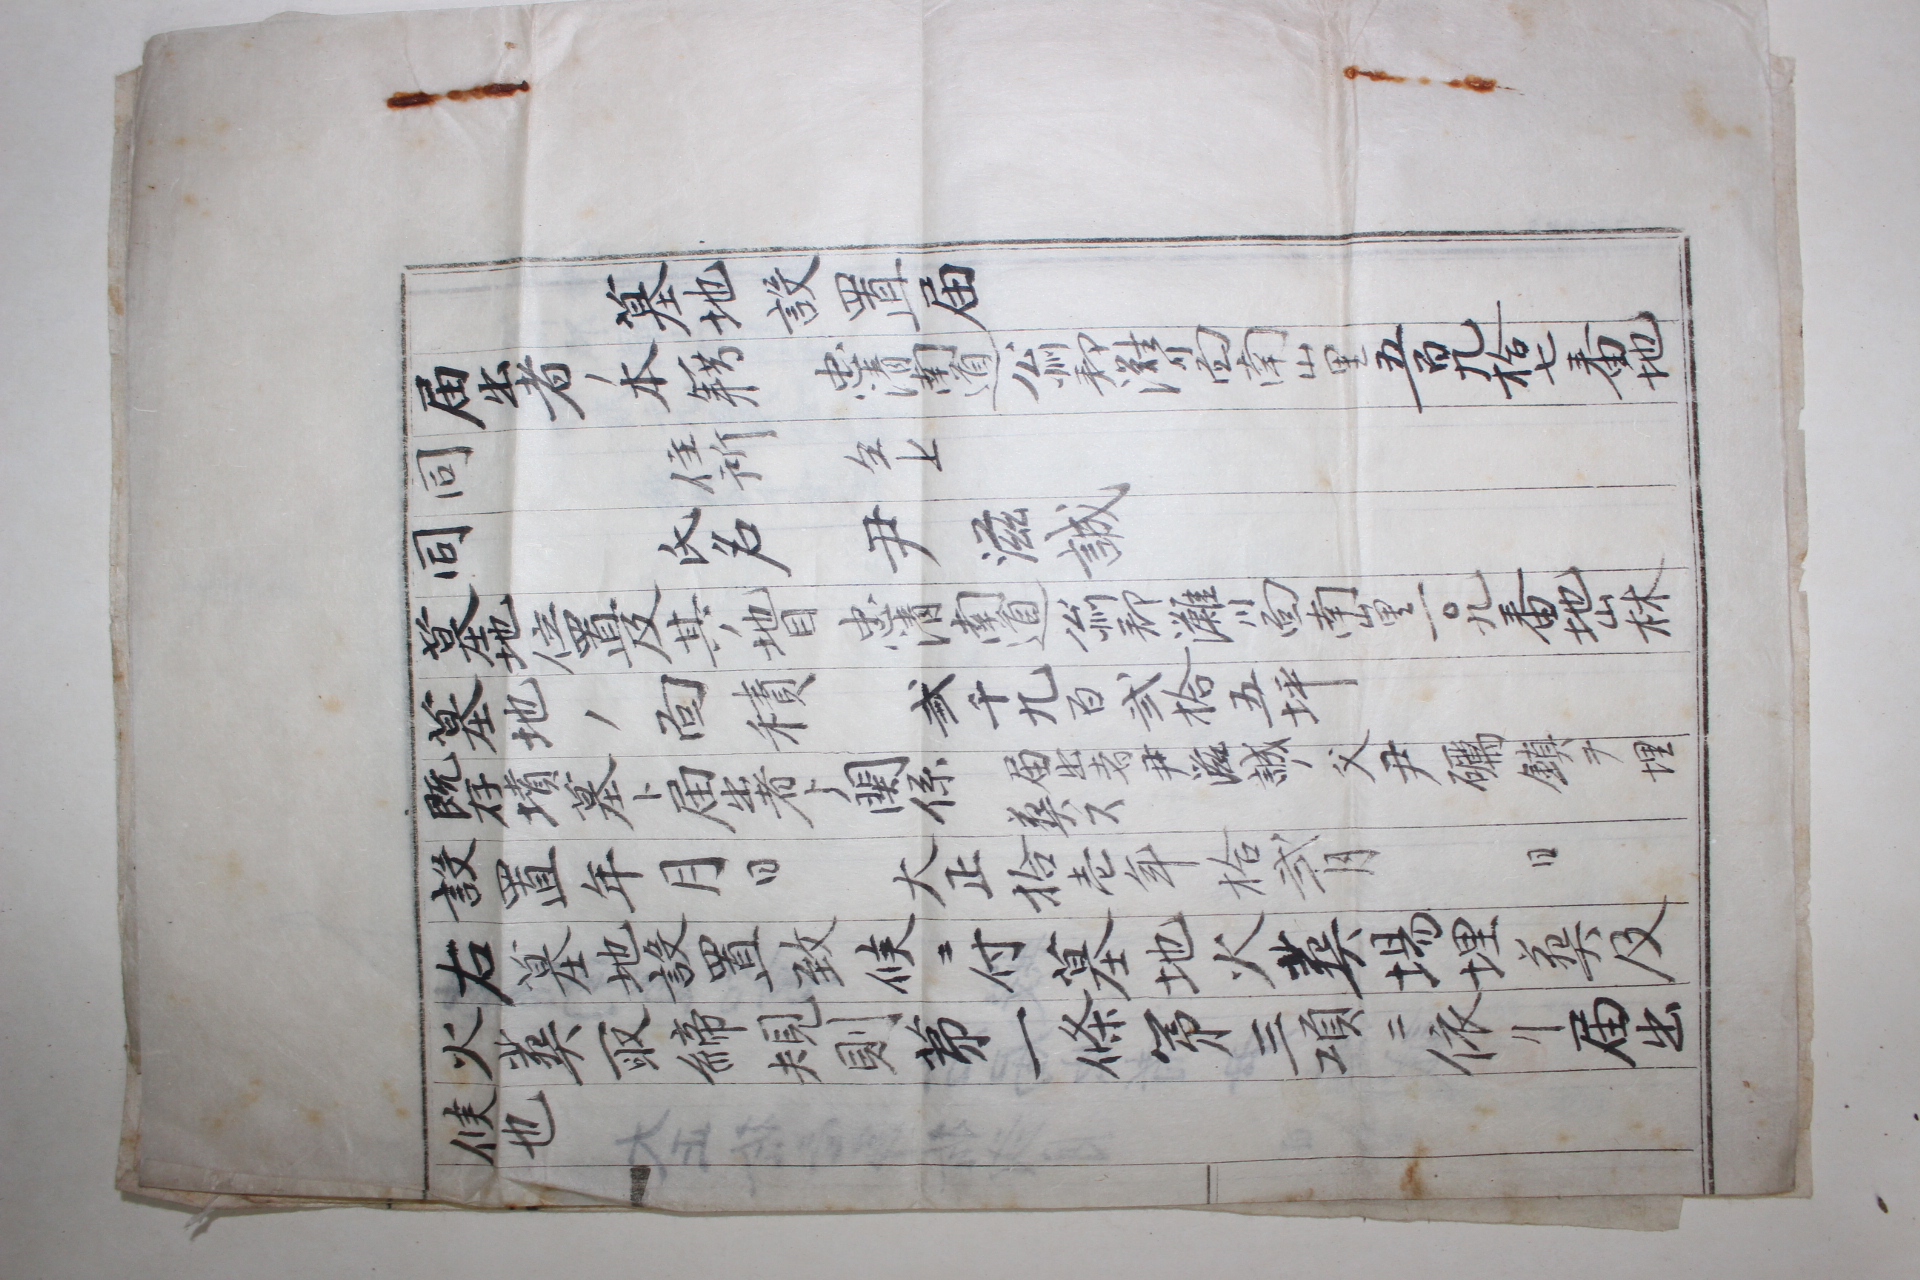 墓地設置届
届出者ノ本籍 忠清南道公州郡灘川面南山里五百九拾七番地
同 住所 仝上
同 氏名 尹滋誠
墓地位置及其ノ地目 忠清南道公州郡灘川面南山里一〇九番地山林
墓地ノ面積 貳千九百貳拾五坪
既存墳墓ト届出者トノ関係 届出者尹滋誠ノ父尹 鎮ヲ埋
葬ス
設置年月日 大正拾壱年拾弐月 日
右墓地設置致候ニ付墓地火葬場埋葬及
火葬取締規則第一條第三項ニ依リ届出
候也